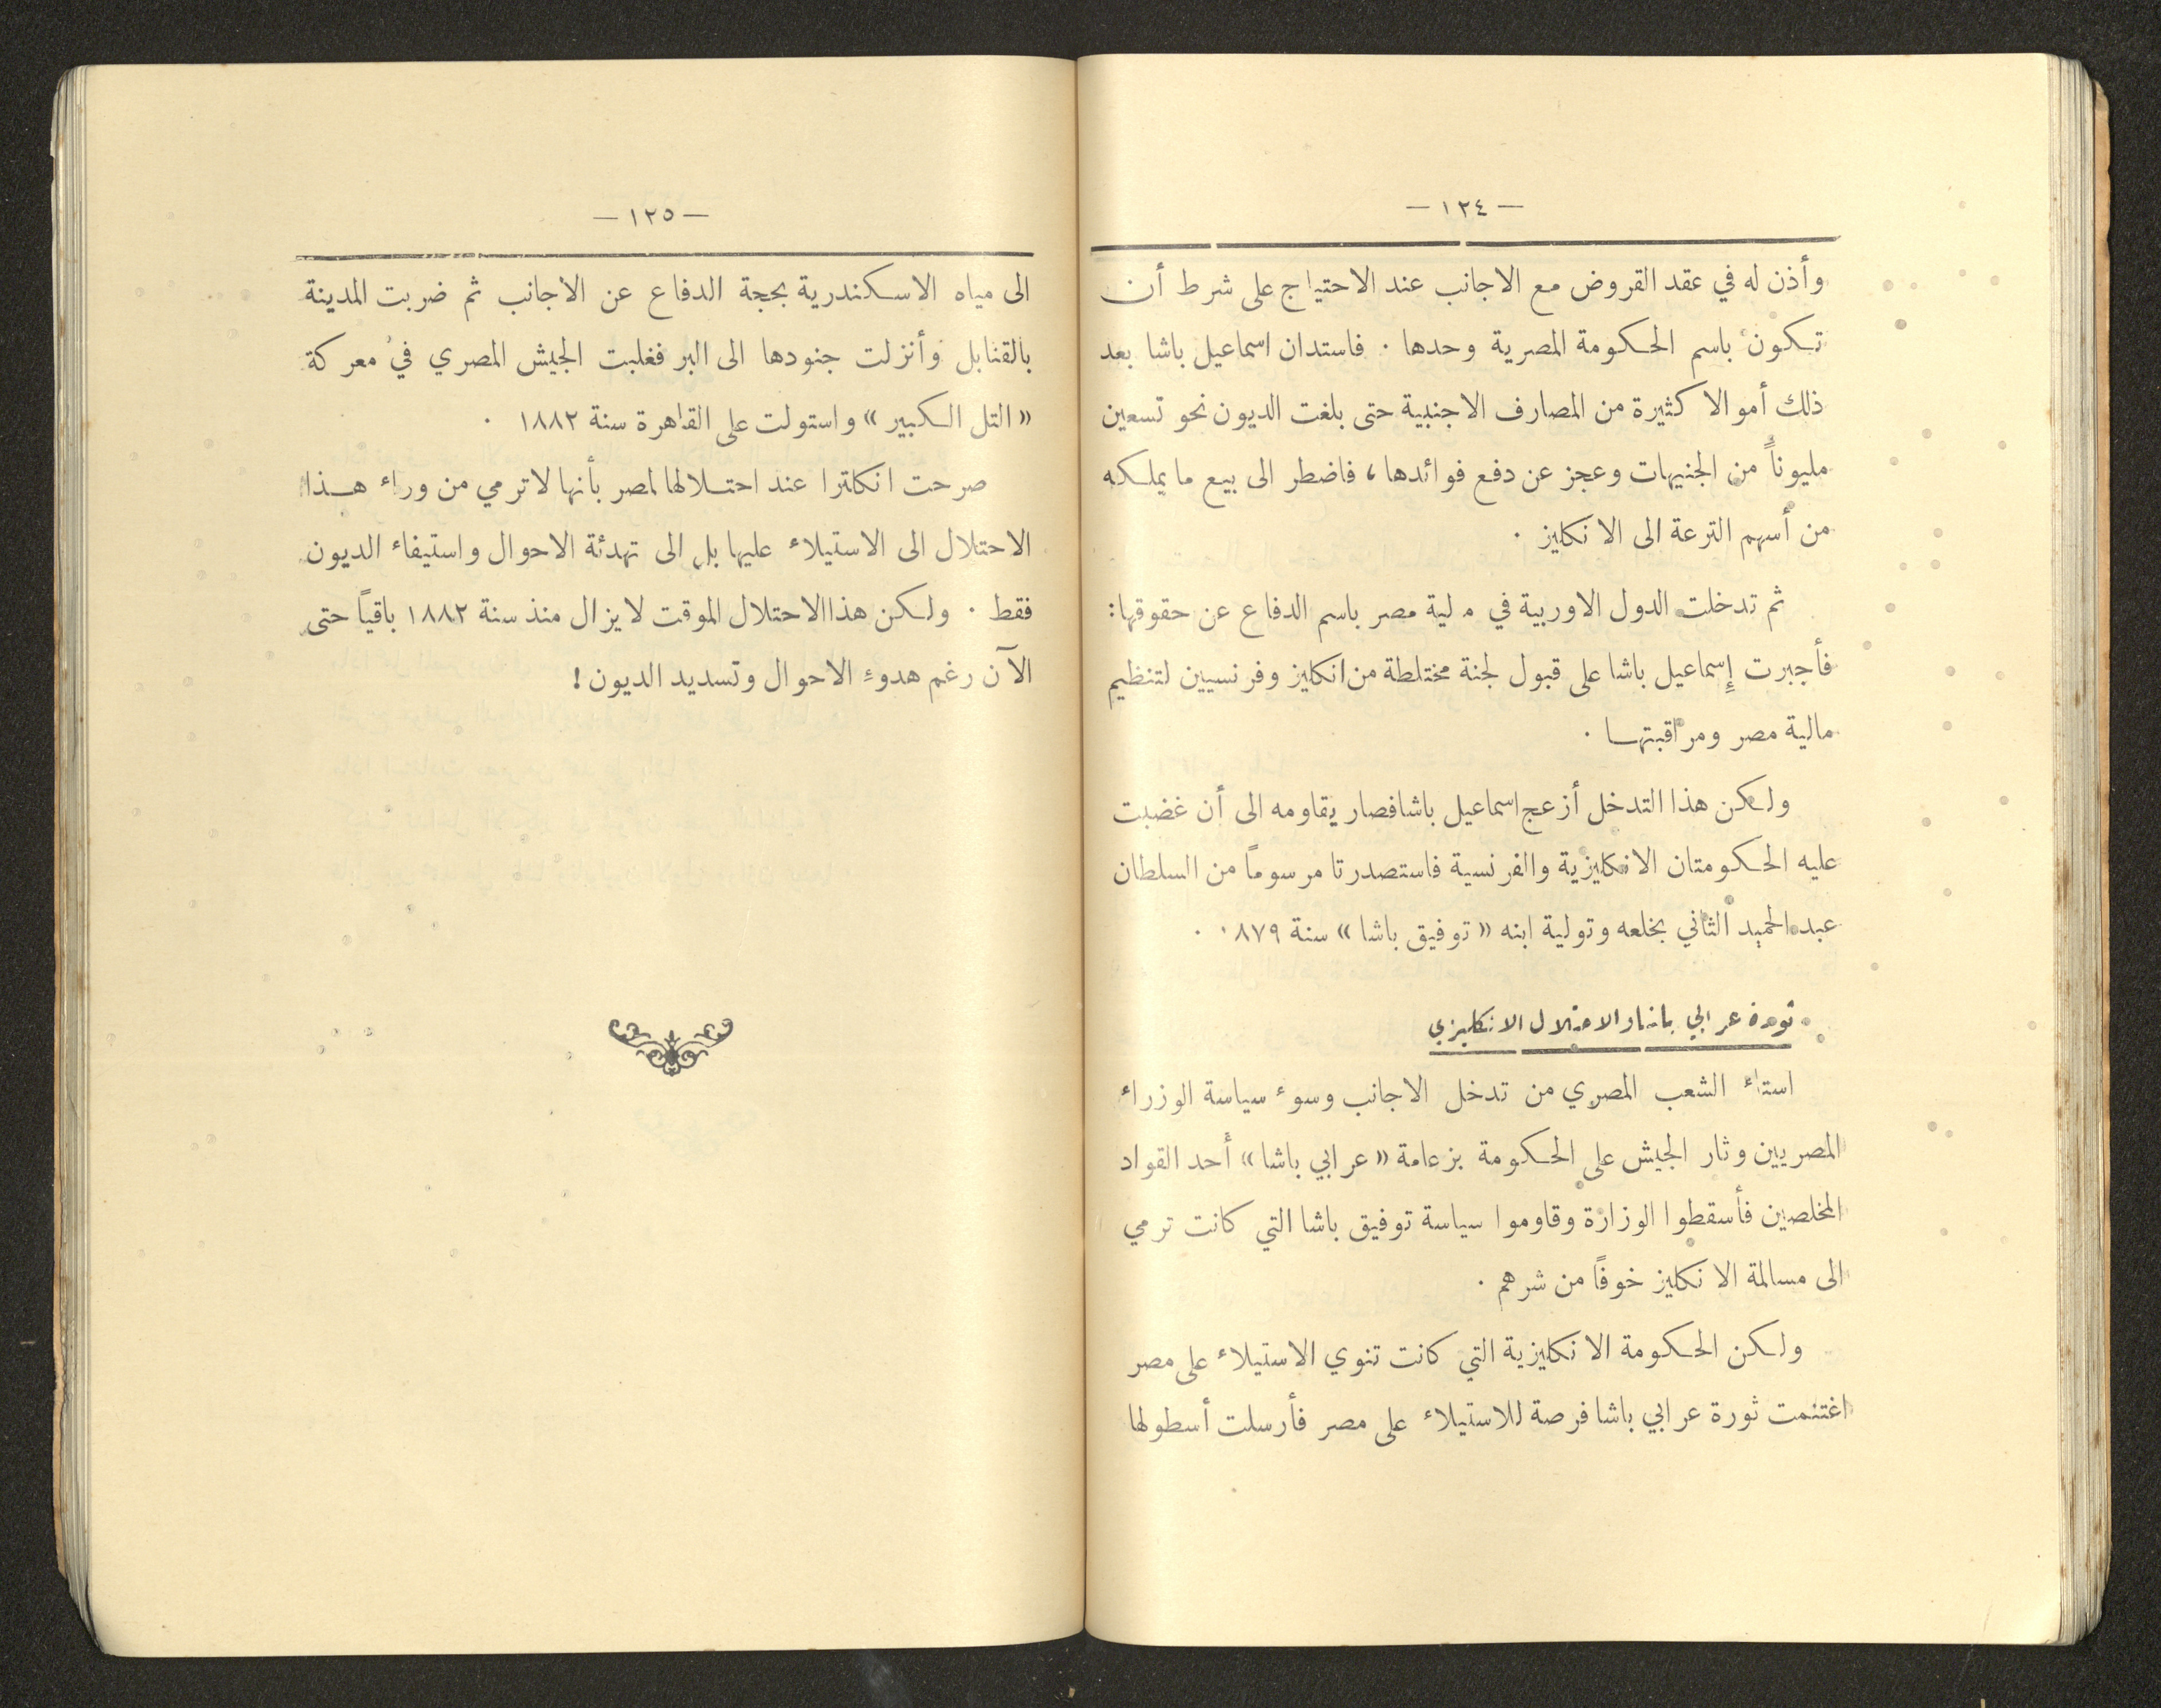 — ١٢٤ —
وأذن له في عقد القروض مع الاجانب عند الاحتياج على شرط أن
تكون باسم الحكومة المصرية وحدها . فاستدان اسماعيل باشا بعد
ذلك أموالا كثيرة من المصارف الاجنبية حتى بلغت الديون نحو تسعين
مليوناً من الجنيهات وعجز عن دفع فوائدها ، فاضطر الى بيع ما يملكه
من أسهم الترعة الى الانكليز .
ثم تدخلت الدول الاوربية في م لية مصر باسم الدفاع عن حقوقها :
فأجبرت إسماعيل باشا على قبول لجنة مختلطة من انكليز وفرنسيين لتنظيم
مالية مصر ومراقبتها .
ولكن هذا التدخل أزعج اسماعيل باشا فصار يقاومه الى أن غضبت
عليه الحكومتان الانكليزية والفرنسية فاستصدرتا مرسوماً من السلطان
عبد الحميد الثاني بخلعه وتولية ابنه « توفيق باشا » سنة ١٨٧٩ .
ثورة عرابي باشا والاحتلال الانكليزي
استاء الشعب المصري من تدخل الاجانب وسوء سياسة الوزراء
المصريين وثار الجيش على الحكومة بزعامة « عرابي باشا » أحد القواد
المخلصين فأسقطوا الوزارة وقاوموا سياسة توفيق باشا التي كانت ترمي
الى مسالمة الانكليز خوفاً من شرهم .
ولكن الحكومة الانكليزية التي كانت تنوي الاستيلاء على مصر
اغتنمت ثورة عرابي باشا فرصة للاستيلاء على مصر فأرسلت أسطولها
— ١٢٥ —
الى مياه الاسكندرية بحجة الدفاع عن الاجانب ثم ضربت المدينة
بالقنابل وأنزلت جنودها الى البر فغلبت الجيش المصري في معركة
« التل الكبير » واستولت على القاهرة سنة ١٨٨٢ .
صرحت انكلترا عند احتلالها لمصر بأنها لا ترمي من وراء هذا
الاحتلال الى الاستيلاء عليها بل الى تهدئة الاحوال واستيفاء الديون
فقط . ولكن هذا الاحتلال الموقت لا يزال منذ سنة ١٨٨٢ باقياً حتى
الآن رغم هدوء الاحوال وتسديد الديون !